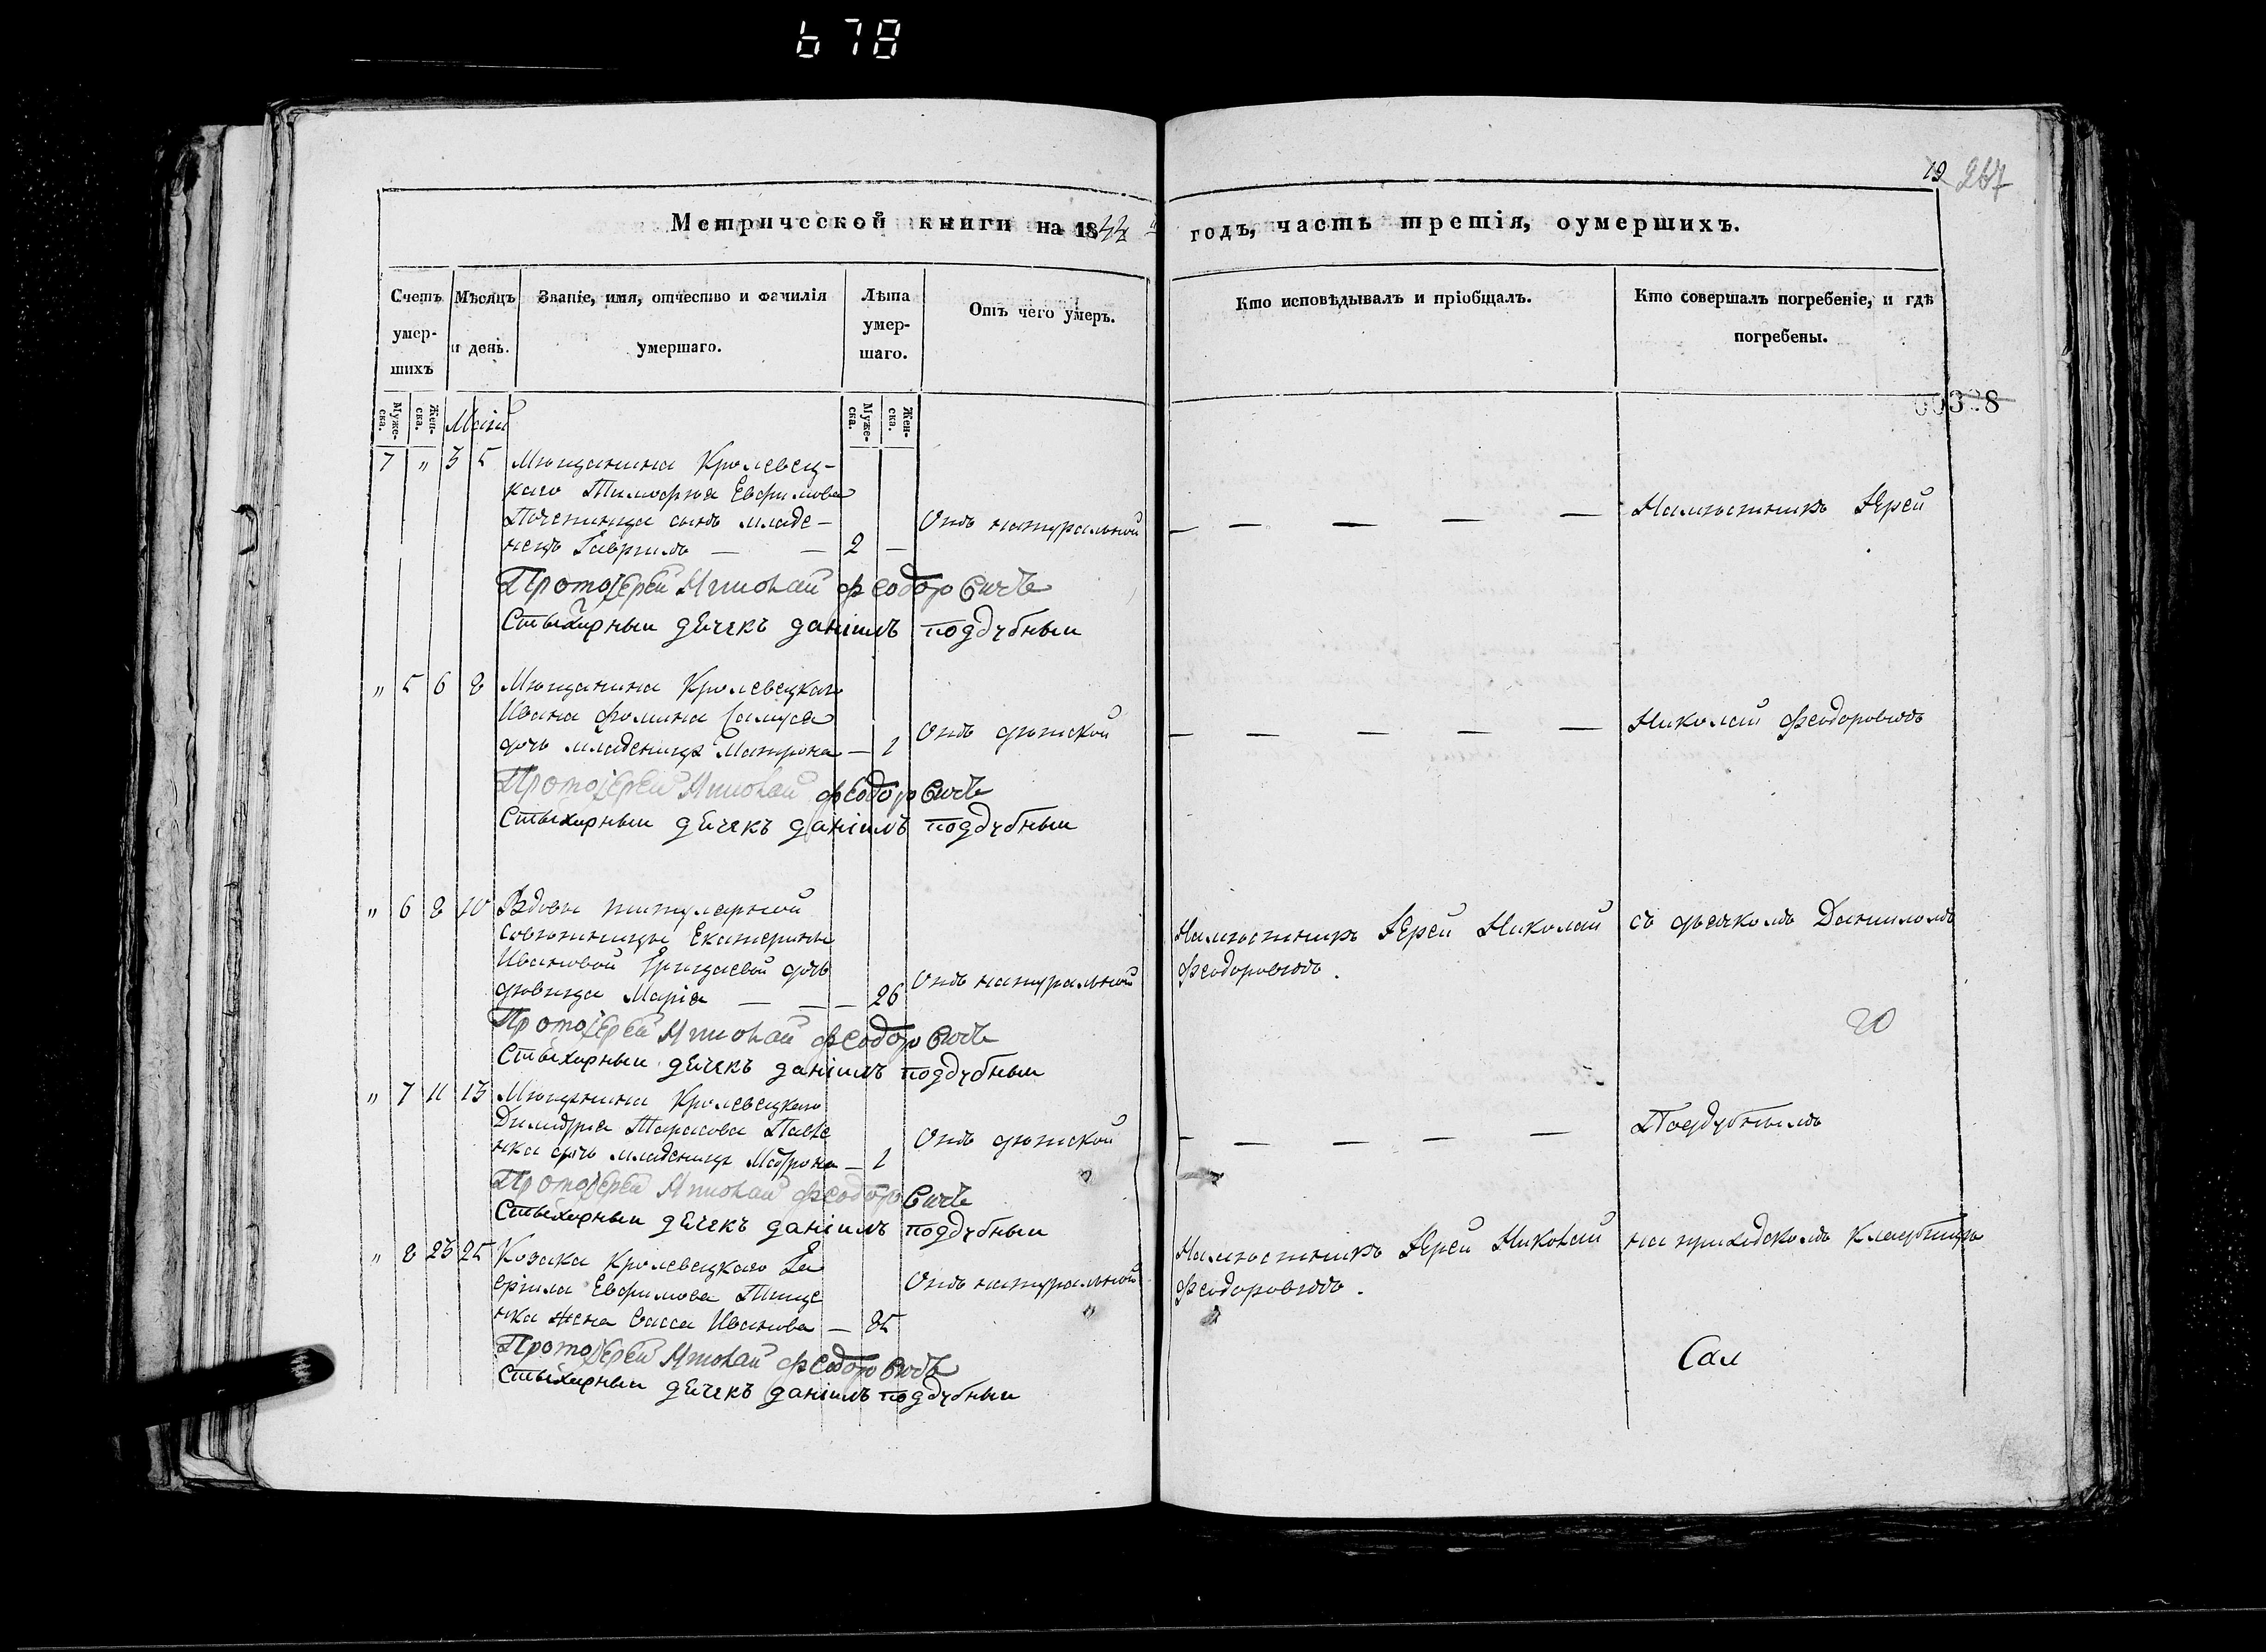 678
19 267
Метрической книги на 1844 годъ, часть третія, оумершихъ.
Счетъ умер-шихъ
Мѣсяцъ и день.
Званіе, имя, отчество и фамилія умершаго.
Лѣта умер-шаго.
Отъ чего умеръ.
Кто исповѣдывалъ и пріобщалъ.
Кто совершалъ погребеніе, и гдѣ погребены.
Муже-ска. Жен-ска. Маій Муже-ска. Жен-ска.
7 " 3 5 Мѣщанина Кролевец-
каго Тимофѣя Евфимова
сынъ младе-
нецъ Гавріилъ — — 2 —
Отъ натуральной — — — — — Намѣстникъ Іерей
Протоіерей Николай Феодоровичъ
Стыхирный дьячекъ даніилъ поддубный
" 5 6 8 Мѣщанина Кролевецкаго
Ивана Фомина
дочь младеница Матрона — 1
Отъ дѣтской — — — — — Николай Феодоровичъ
Протоіерей Николай Феодоровичъ
Стыхирный дьячекъ даніилъ поддубный
" 6 8 10 Вдовы титулярной
совѣтницы Екатерины
Ивановой дочь
дѣвица Марія — — — 26
Отъ натуральной
Намѣстникъ Іерей Николай
Феодоровичъ.
съ дьячкомъ Даниломъ
20
Протоіерей Николай Феодоровичъ
Стыхирный дьячекъ даніилъ поддубный
" 7 11 13 Мѣщанина Кролевецкаго
Димитрія Тарасова Павле
нка дочь младеница — 1
Отъ дѣтской — — — — — Поддубнымъ
Протоіерей Николай Феодоровичъ
Стыхирный дьячекъ даніилъ поддубный
" 8 23 25 Козака Кролевецкаго Га
вріила Евфимова Тище
нка жена Васса Иванова — 85
Отъ натуральной
Намѣстникъ Іерей Николай
Феодоровичъ.
на приходскомъ кладбищѣ
Протоіерей Николай Феодоровичъ
Стыхирный дьячекъ даніилъ поддубный